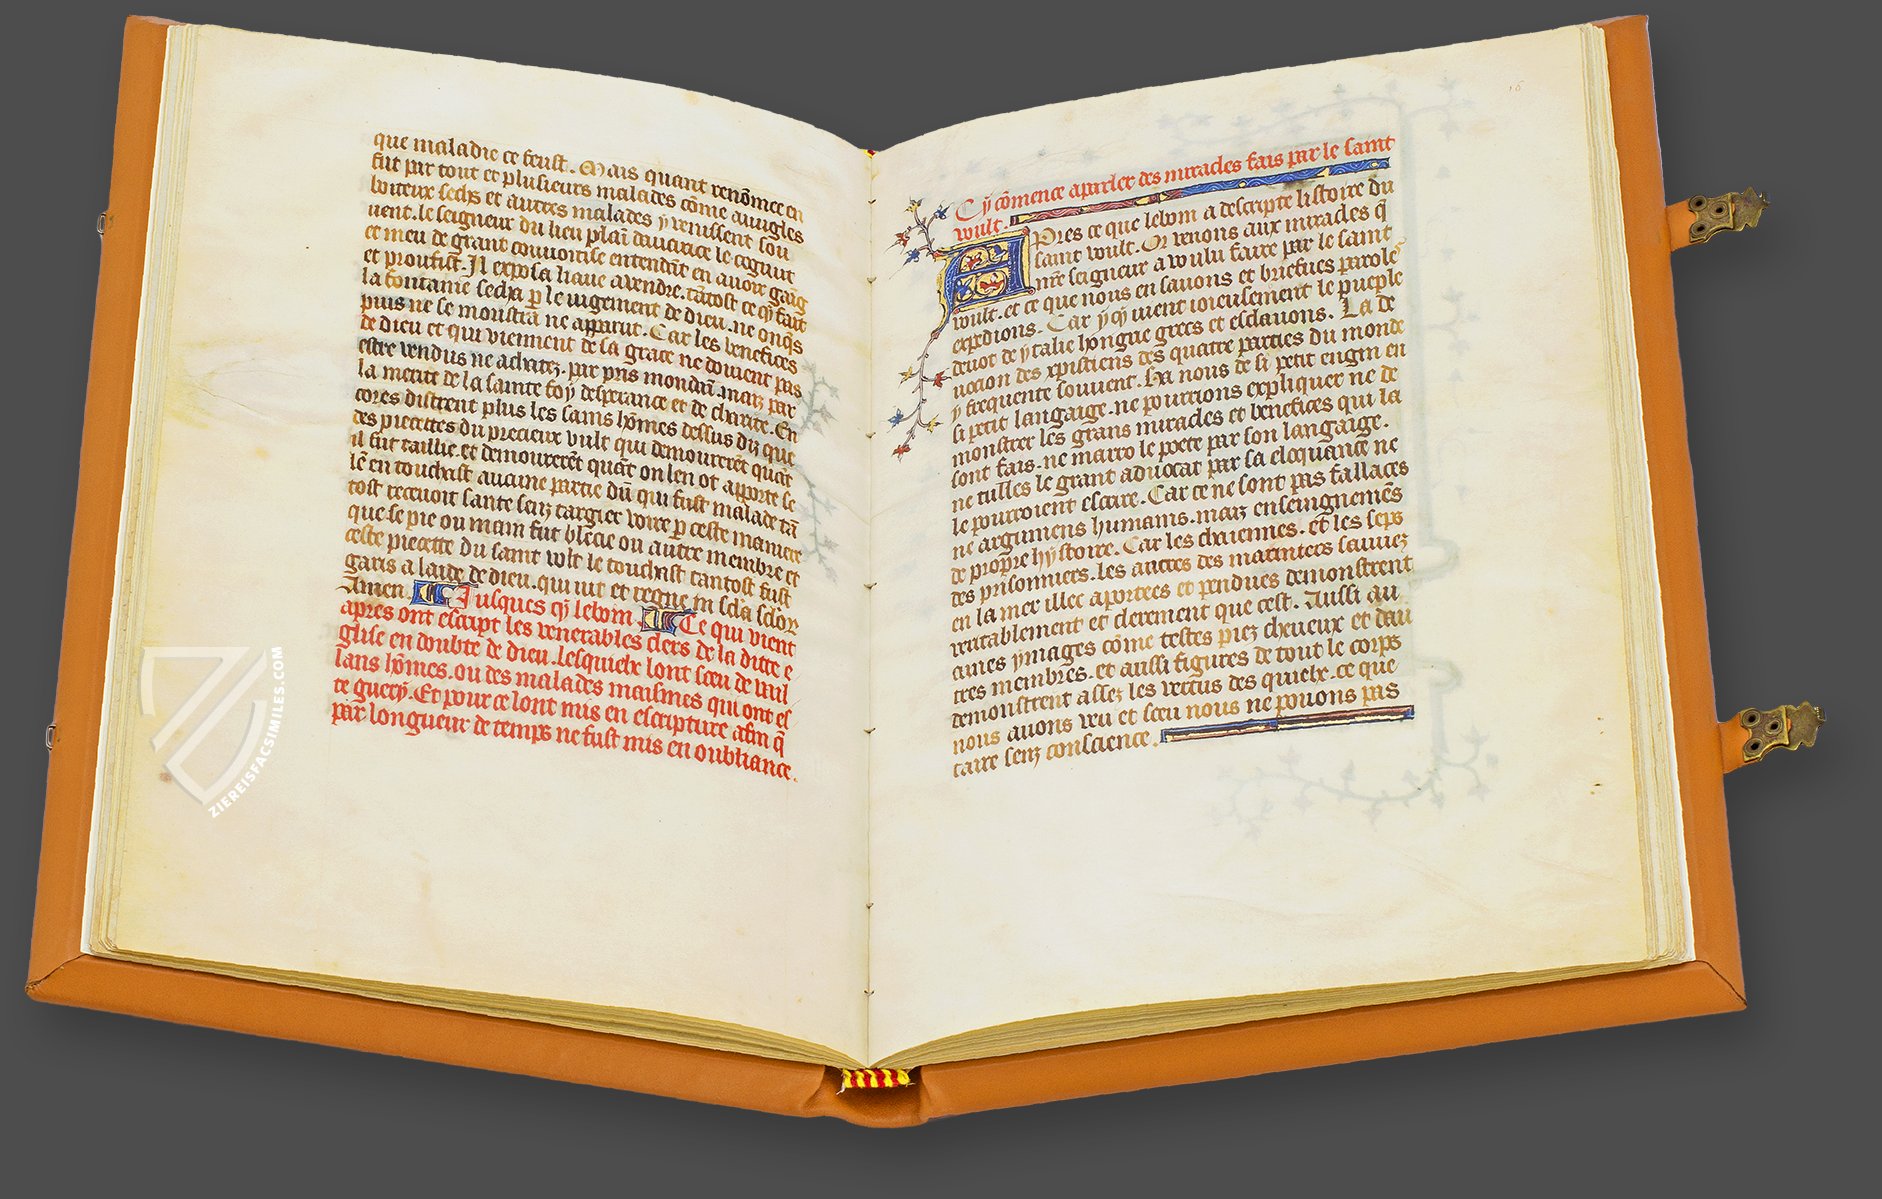 que maladie ce feust. Mais quant renōmee en
fut par tout et plusieurs malades cōme auugles
boiteux sechs et autres malades y venissent sou
uent. le seigneur du lieu plaī dauarice le cognut
et meu de grant couuoitise entendāt en auoir gaig
et proufist. Il exposa liaue a vendre. tātost ce q̄ fait
la fontaine secha p le iugement de dieu. ne onq̄s
puis ne se moustra ne apparut. Car les benefices
de dieu et qui viennent de sa grace ne doiuent pas
estre vendus ne achatez. par pris mondaī. maiz par
la merite de la sainte foy desperance et de charite. En
cores distrent plus les sains hōmes dessus diz que
des piecettes du precieux vult qui demourerēt quāt
il fut taillie. et demourerēt quāt on len ot apporte se
lē en touchast aucune partie dū qui fust malade tā
tost receuoit sante senz targier voire p ceste maniere
que se pie ou main fut blecie ou autre membre et
ceste piecette du saint volt le touchast tantost fust
garis a laide de dieu. qui uit et regne in scla sclor
Amen. Jusques cy lebom Ce qui vient
apres ont escript les venerables clers de la ditte e
glise en doubte de dieu. lesquielx lont sceu de uail
lans hōmes. ou des malades maismes qui ont es
te guery. Et pour ce lont mis en escripture afin q̄
par longueur de temps ne fust mis en oubliance.
16
Cy cōmence a parler des miracles fais par le saint
voult.
Apres ce que lebom a descripte listoire du
saint voult. Or venons aux miracles q̄
nr̄e seigneur a volu faire par le saint
voult. et ce que nous en sauons et briefues parole
expedions. Car ycy uient ioieusement le pueple
deuot de ytalie hongrie grecs et esclauons. La de
uocion des xpistiens des quatre parties du monde
y frequente souuent. La nous de si petit engin en
si petit langaige. ne pourrions expliquer ne de
monstrer les grans miracles et benefices qui la
sont fais. ne marro le poete par son langaige.
ne tulles le grant aduocat par sa eloquance ne
le pourroient escrire. Car ce ne sont pas fallaces
ne argumens humains. maiz enseignemēs
de propre hystoire. Car les chaiennes. et les seps
des prisonniers. les ancres des mariniers sauuez
en la mer illec aportees et pendues demonstrent
veritablement et clerement que cest. Aussi au
cunes ymages cōme testes piez cheueux et dau
tres membres. et aussi figures de tout le corps
demonstrent assez les vertus des quielx. ce que
nous auons veu et sceu nous ne pouons pas
taire senz conscience.
ZIEREISFACSIMILES.COM